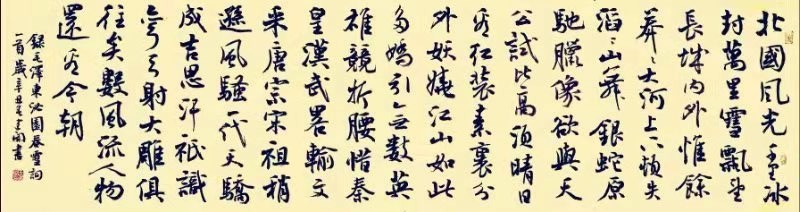 北國風光千里冰
封萬里雪飄望
長城内外惟餘
莽々大河上下頓失
滔々山舞銀蛇原
馳臘像欲與天
公試比高須晴日
看紅裝素裹分
外妖嬈江山如此
多嬌引無數英
雄競折腰惜秦
皇漢武畧輸文
采唐宗宋祖稍
遜風騷一代天驕
成吉思汗祇識
彎弓射大雕俱
往矣數風流人物
還看今朝
錄毛澤東沁園春雪詞
一首歲辛丑書